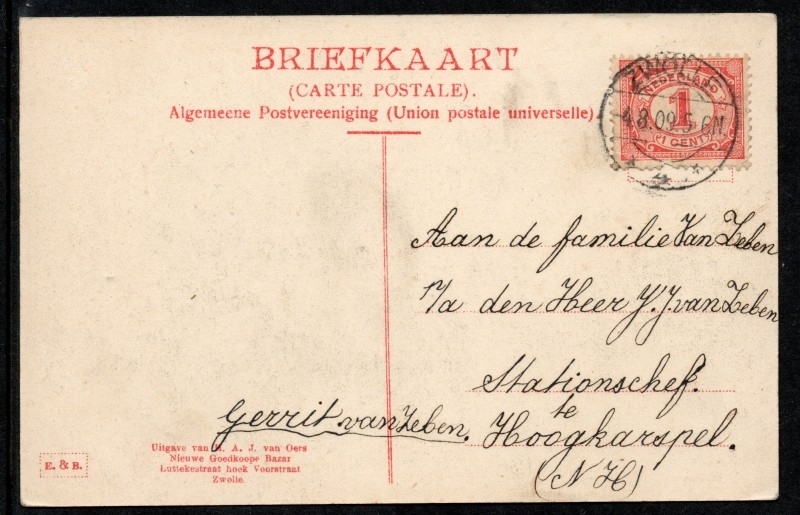 BRIEFKAART
(CARTE POSTALE).
Algemeene Postvereeniging (Union postale universelle)
NEDERLAND
1
1 CENT
4.8.09.5-6N
Aan de familie Van Leben
p/a den Heer Y. J. van Leben
Stationschef.
te
Hoogkarspel.
(N H)
Gerrit van Leben.
Uitgave van A. J. van Oers
Nieuwe Goedkoope Bazar
Luttekestraat hoek Voorstraat
Zwolle.
E. & B.